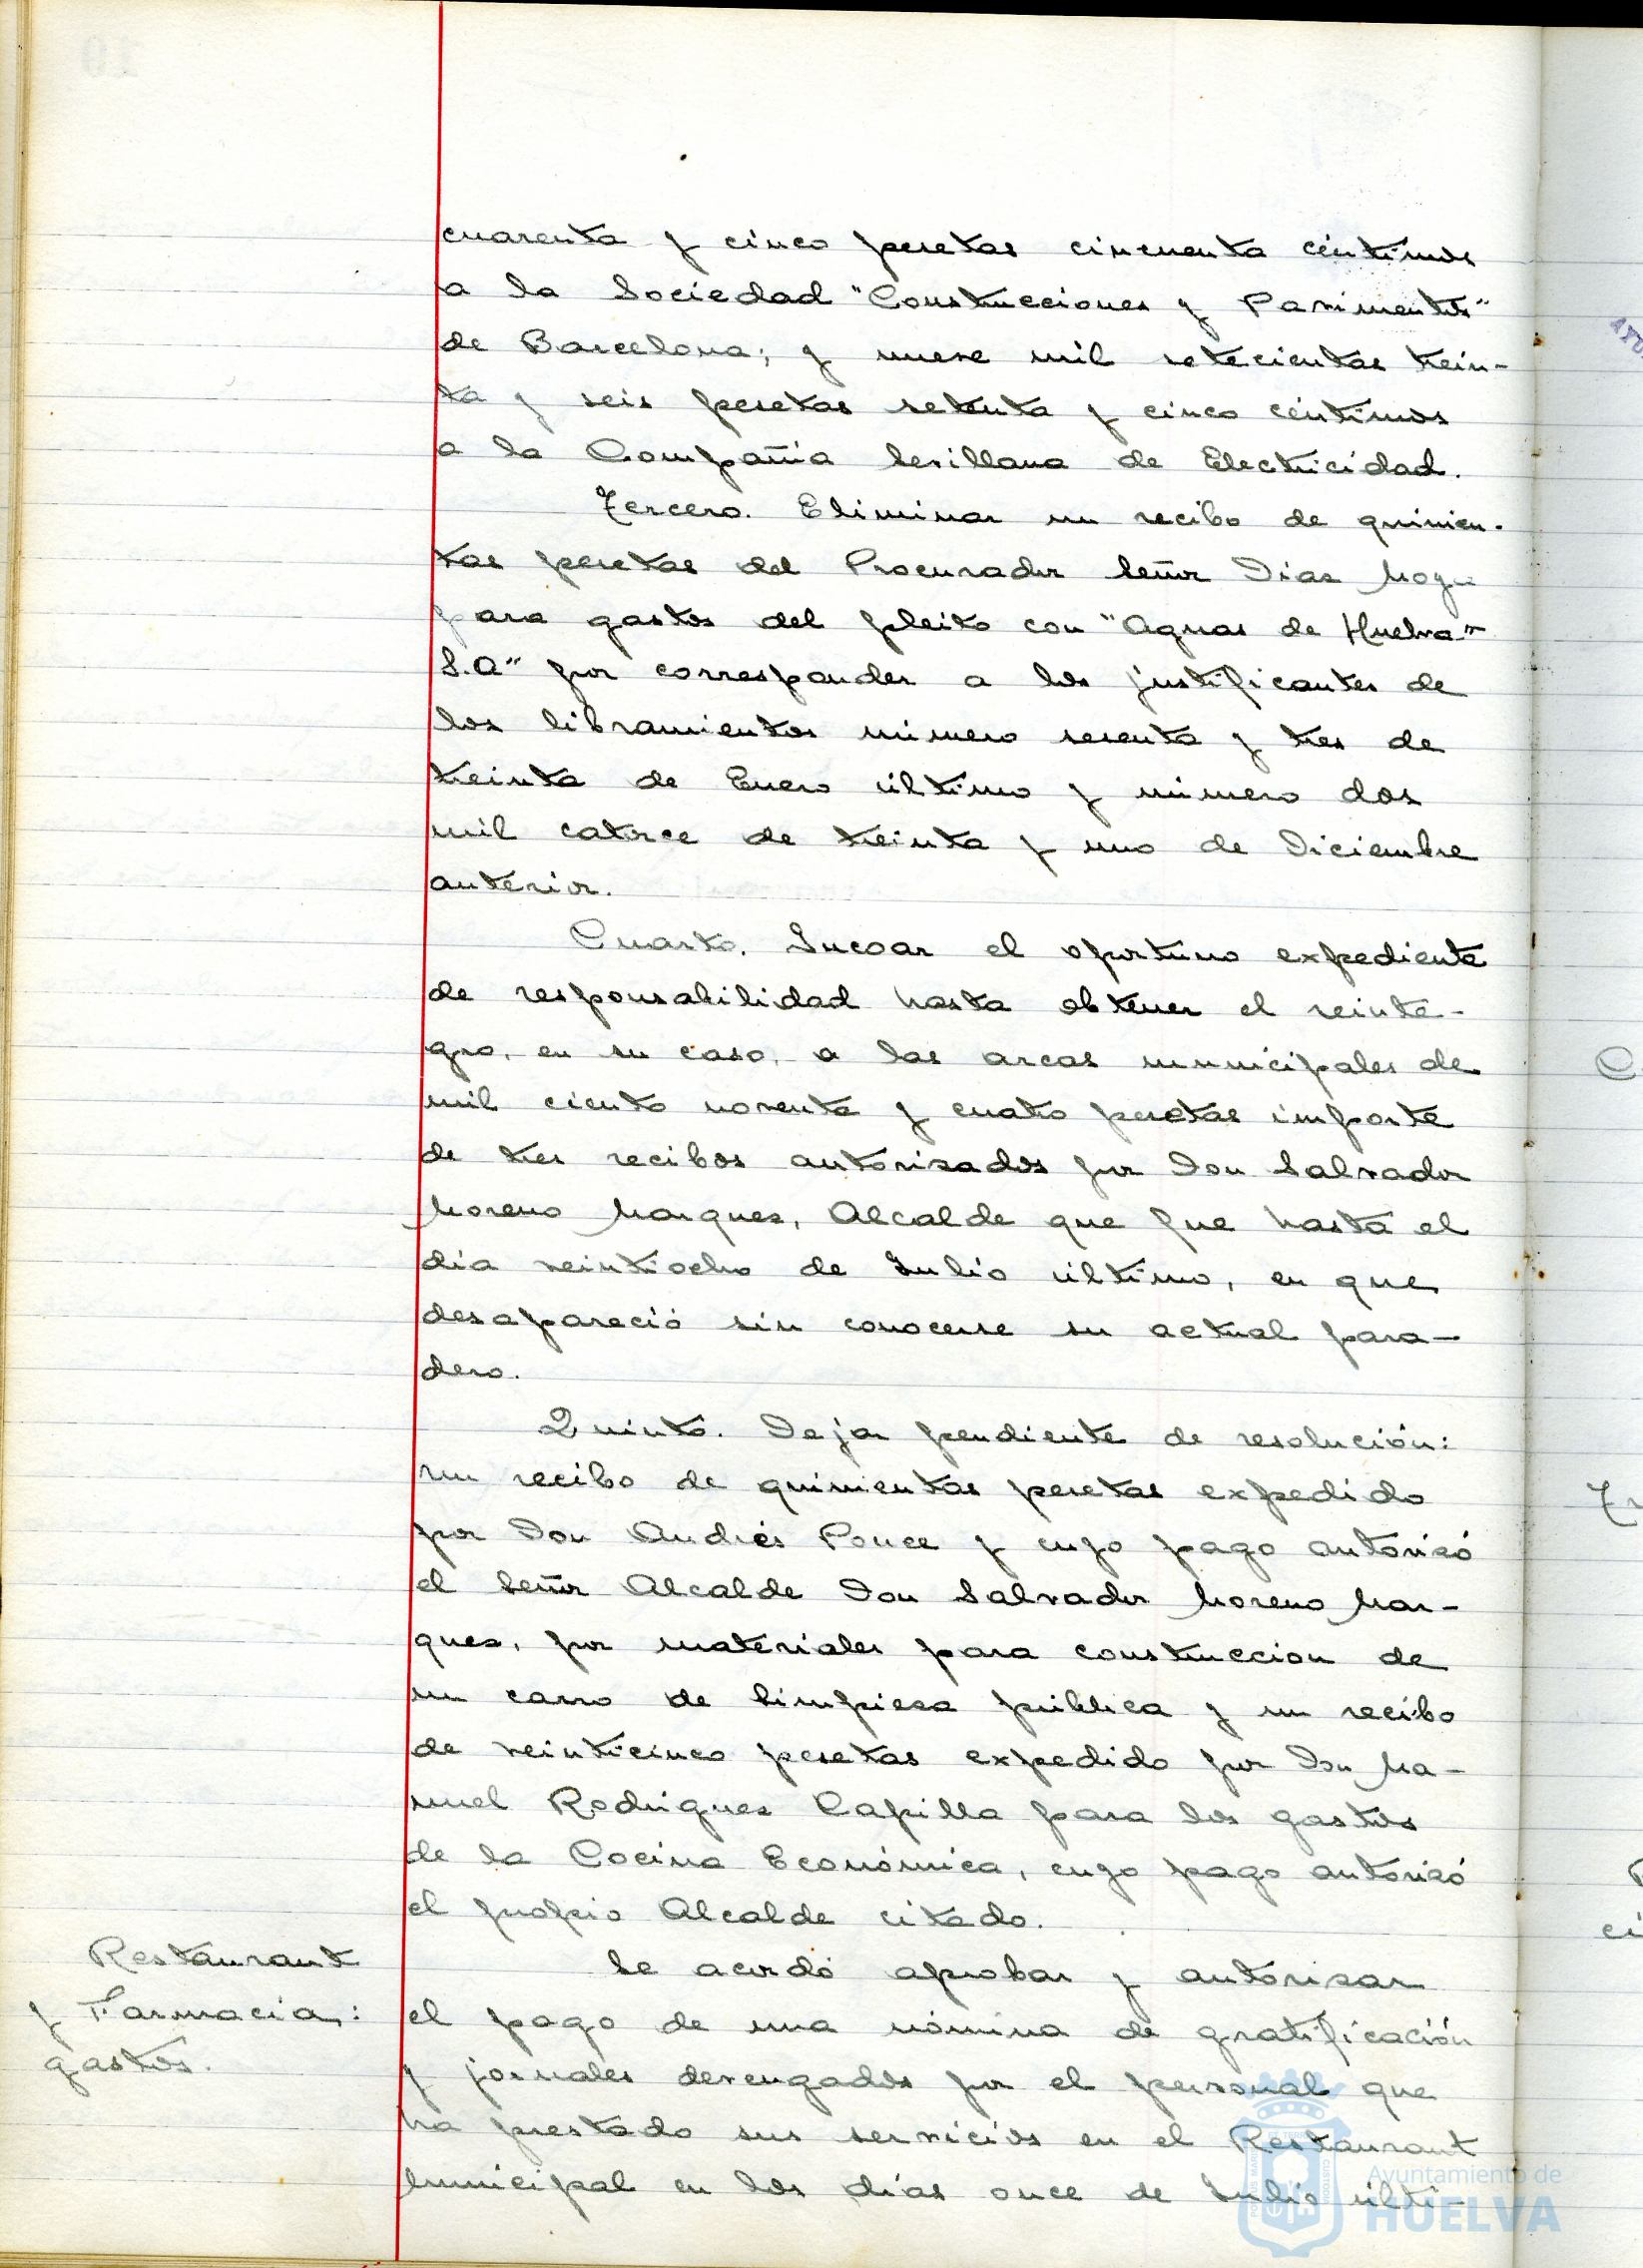 cuarenta y cinco pesetas cincuenta céntimos
a la Sociedad "Construcciones y Pavimentos"
de Barcelona; y nueve mil setecientas trein-
ta y seis pesetas setenta y cinco céntimos
a la Compañia Sevillana de Electricidad.
Tercero. Eliminar un recibo de quinien-
tas pesetas del Procurador Señor Diaz
para gastos del pleito con "Aguas de Huelva-
S.A" por corresponder a los justificantes de
los libramientos número sesenta y tres de
treinta de Enero último y número dos
mil catorce de treinta y uno de Diciembre
anterior.
Cuarto. Incoar el oportuno expediente
de responsabilidad hasta obtener el reinte-
gro, en su caso, a las arcas municipales de
mil ciento noventa y cuatro pesetas importe
de tres recibos autorizados por Don Salvador
Moreno Marquez, Alcalde que fue hasta el
día veintiocho de Julio último, en que
desapareció sin conocerse su actual para-
dero.
Quinto. Dejar pendiente de resolución:
un recibo de quinientas pesetas expedido
por Don Andrés Ponce y cuyo pago autorizó
el Señor Alcalde Don Salvador Moreno Mar-
quez, por materiales para construccion de
un carro de limpieza pública y un recibo
de veinticinco pesetas expedido por Don Ma-
nuel Rodriguez Capilla para los gastos
de la Cocina Económica, cuyo pago autorizó
el propio Alcalde citado.
Restaurant
y Farmacia:
gastos.
Se acordó aprobar y autorizar
el pago de una nómina de gratificación
y jornales devengados por el personal que
ha prestado sus servicios en el Restaurant
Municipal en los días once de Julio últi-
Ayuntamiento de
HUELVA